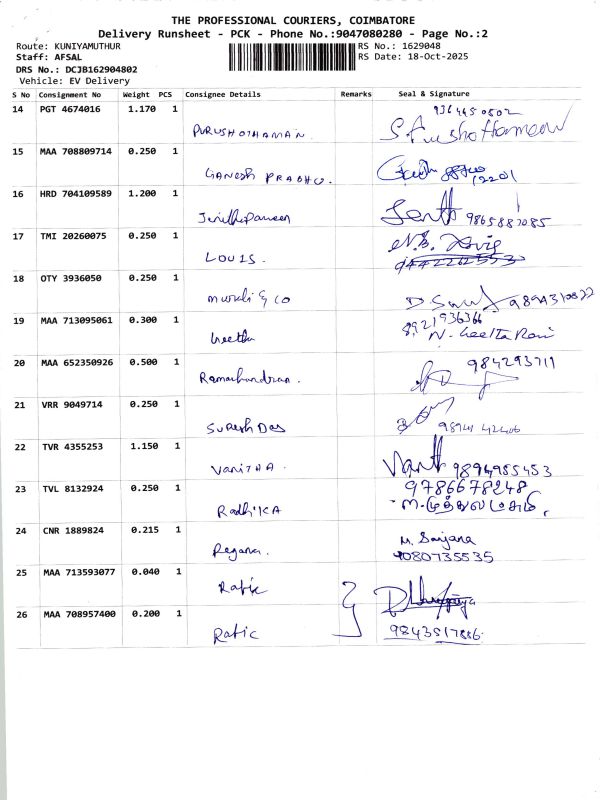 THE PROFESSIONAL COURIERS, COIMBATORE
Delivery Runsheet - PCK - Phone No.:9047080280 - Page No.:2
Route: KUNIYAMUTHUR RS No.: 1629048
Staff: AFSAL RS Date: 18-Oct-2025
DRS No.: DCJB162904802
Vehicle: EV Delivery
S No Consignment No Weight PCS Consignee Details Remarks Seal & Signature
14 PGT 4674016 1.170 1
PURUSHOTHAMAN.
15 MAA 708809714 0.250 1
GANESH PRABHU. 12201
16 HRD 704109589 1.200 1
9865887085
17 TMI 20260075 0.250 1
LOUIS. 9442262553
18 OTY 3936050 0.250 1
Murali & co 9894310822
19 MAA 713095061 0.300 1 8921936366
Geetha N. Geetha Rani
20 MAA 652350926 0.500 1 984293711
Ramachandran.
21 VRR 9049714 0.250 1
Suresh Das
22 TVR 4355253 1.150 1
VANITHA. 9894985453
23 TVL 8132924 0.250 1 9786678248
RadhiKA
24 CNR 1889824 0.215 1 M. Sanjana
9080735535
25 MAA 713593077 0.040 1
Rafic
26 MAA 708957400 0.200 1
Rafic 9843517886.